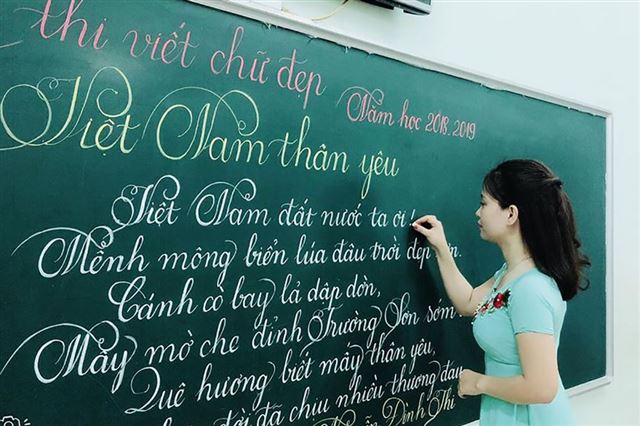 thi viết chữ đẹp
Năm học 2018-2019
Việt Nam thân yêu
Việt Nam đất nước ta ơi!
Mênh mông biển lúa đâu trời đẹp hơn.
Cánh cò bay lả dập dờn,
Mây mờ che đỉnh Trường Sơn sớm
Quê hương biết mấy thân yêu,
đời đã chịu nhiều thương đau
Đình Thi